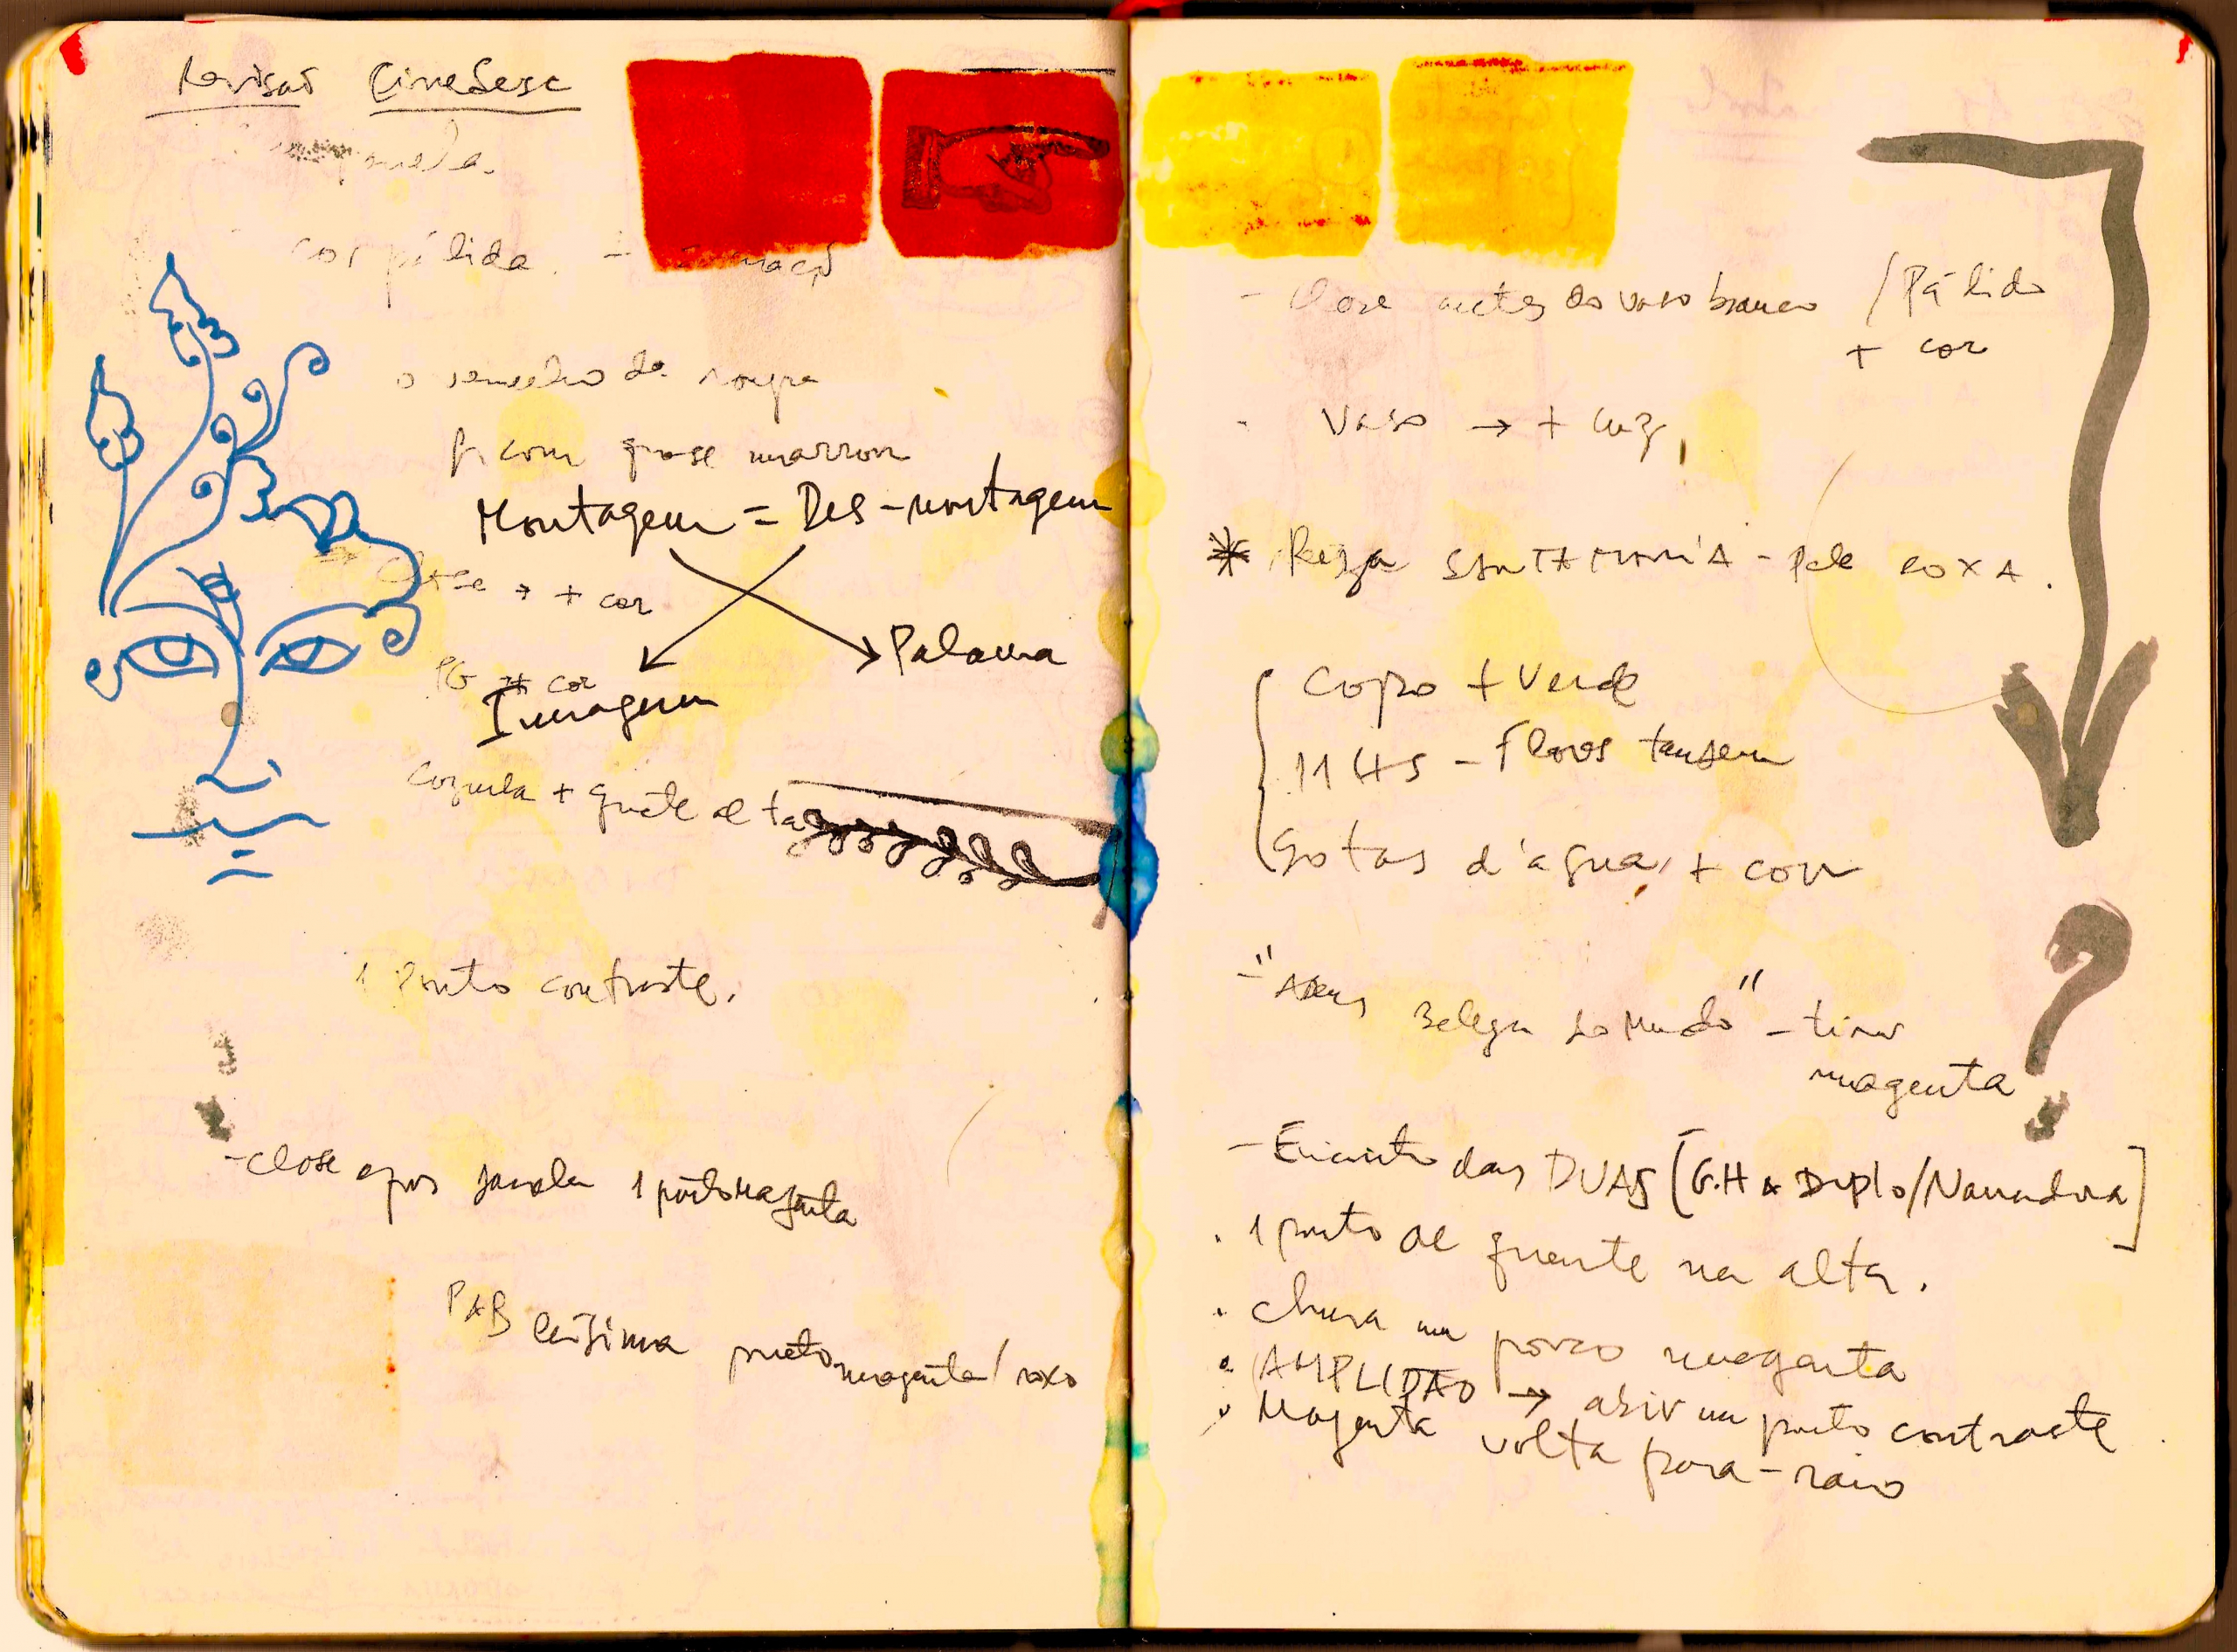 Revisão CineSesc
cor pálida. -
o vermelho da roupa
ficou quase marrom
Montagem = Des-montagem
Close → + cor
Palavra
PG → + cor
Imagem
cozinha + quente alta
1 Ponto contraste.
- close após janela 1 ponto magenta
PAB preto magenta / roxo
- Close antes do vaso branco / Pálido
+ cor
- Vaso → + luz
* Reza SANTA MARIA - Pele ROXA.
Copo + Verde
- Flores também
Gotas d'água + cor
- " Beleza do Mundo" - tirar
magenta
- Encontro das DUAS [G.H & Duplo/Narradora]
. 1 ponto de quente na alta.
. chuva um pouco magenta
. AMPLIDÃO → abrir um ponto contraste
. Magenta volta para-raios